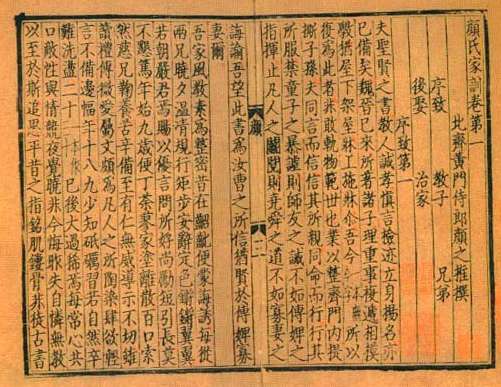 顏氏家訓卷第一
北齊黃門侍郎顏之推撰
序致 教子 兄弟
後娶 治家
序致第一
夫聖賢之書教人誠孝慎言檢迹立身揚名亦
已備矣魏晉已來所著諸子理重事複遞相模
斅猶屋下架屋牀上施牀尒吾今所以
復為此者非敢軌物範世也業以整齊門內提
撕子孫夫同言而信信其所親同命而行行其
所服禁童子之暴謔則師友之誡不如傅婢之
指揮止凡人之鬭鬩則堯舜之道不如寡妻之
顏一
誨諭吾望此書為汝曹之所信猶賢於傅婢寡
妻爾
吾家風教素為整密昔在齠齔便蒙誨誘每從
兩兄曉夕溫凊規行矩步安辭定色鏘鏘翼翼
若朝嚴君焉賜以優言問所好尚勵短引長莫
不懇篤年始九歲便丁荼蓼家塗離散百口索
然慈兄鞠養苦辛備至有仁無威導示不切雖
讀禮傳微愛屬文頗為凡人之所陶染肆欲輕
言不備邊幅年十八九少知砥礪習若自然卒
難洗盪二十已後大過稀焉每常心共
口敵性與情競夜覺曉非今悔昨失自憐無教
以至於斯追思平昔之指銘肌鏤骨非徒古書